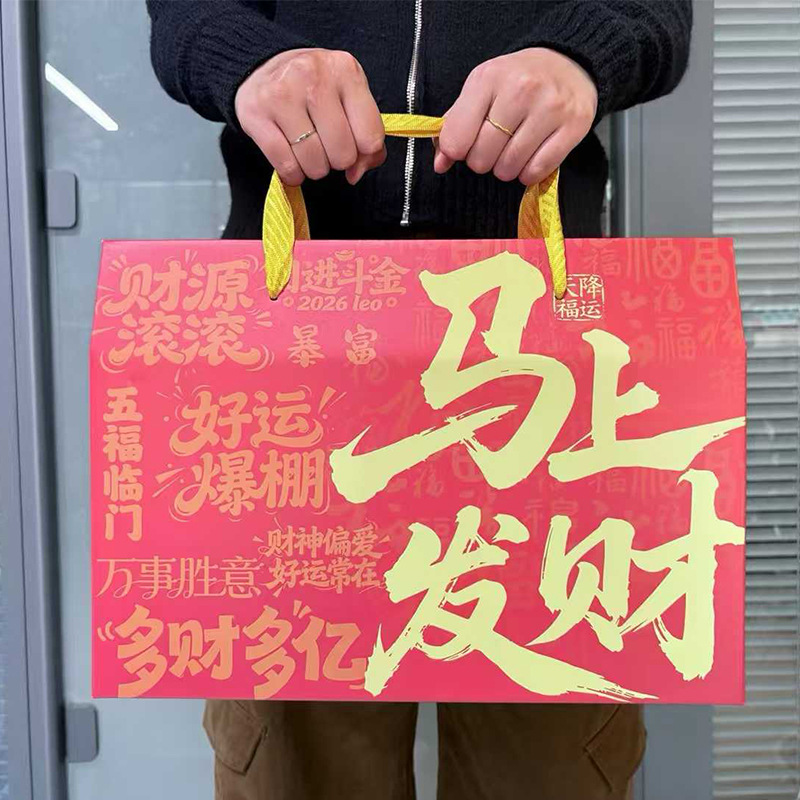 财源
滚滚
日进斗金
2026 leo
暴富
五福临门
好运
爆棚
财神偏爱
好运常在
万事胜意
多财多亿
马上
发财
天降
福运